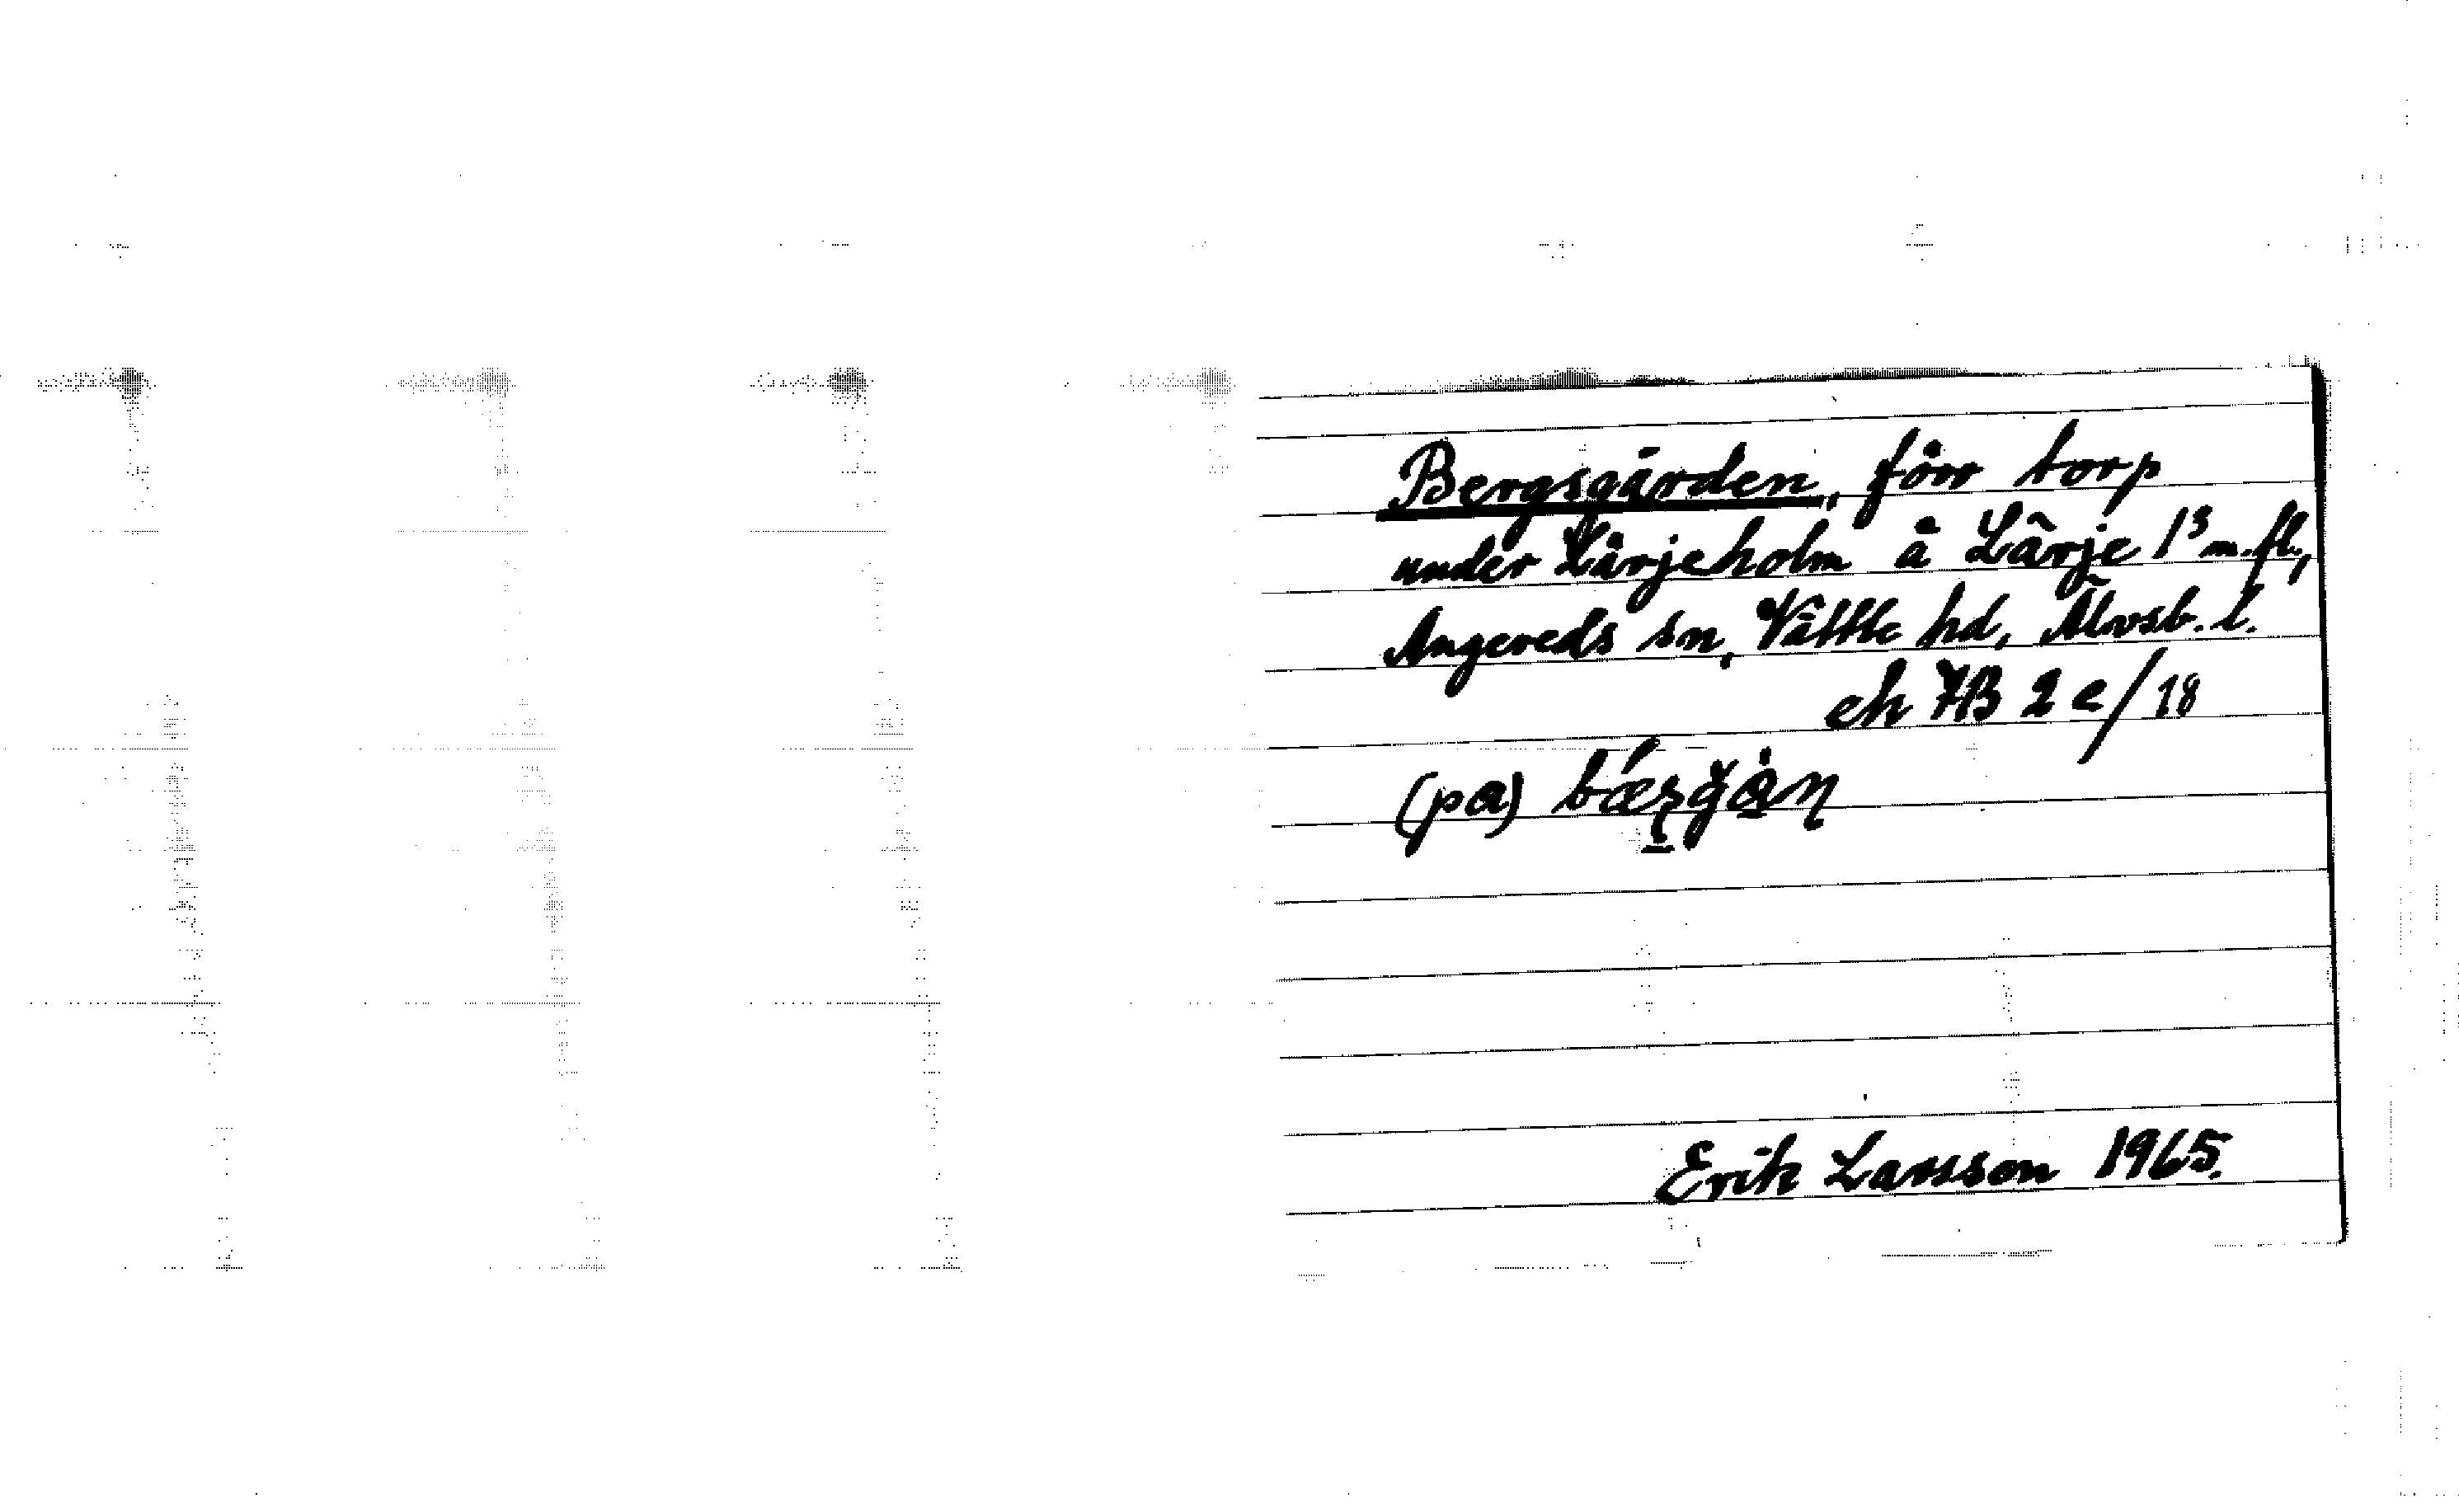 Bergsgården, förr torp
under Lärjeholm å Lärje 1³ m.fl.,
Angereds sn, Vättle hd, Älvsb. l.
ek 7B 2e/18
(pa)
Erik Larsson 1965.